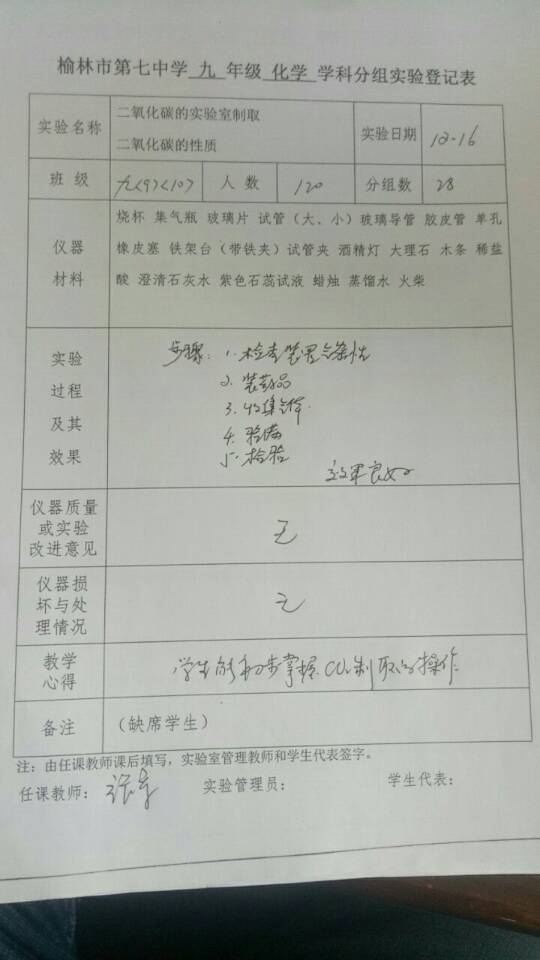 榆林市第七中学 九 年级 化学 学科分组实验登记表
实验名称 二氧化碳的实验室制取
二氧化碳的性质
实验日期 12.16
班 级 九<9><10> 人 数 120 分组数 28
仪器
材料
烧杯 集气瓶 玻璃片 试管（大、小）玻璃导管 胶皮管 单孔
橡皮塞 铁架台（带铁夹）试管夹 酒精灯 大理石 木条 稀盐
酸 澄清石灰水 紫色石蕊试液 蜡烛 蒸馏水 火柴
实验
过程
及其
效果
步骤：1.检查装置气密性
2.装药品
3.收集气体.
4.验满
5.检验
效果良好
仪器质量
或实验
改进意见
无
仪器损
坏与处
理情况
无
教学
心得
学生能初步掌握CO₂制取的操作.
备注 （缺席学生）
注：由任课教师课后填写，实验室管理教师和学生代表签字。
任课教师： 实验管理员： 学生代表：